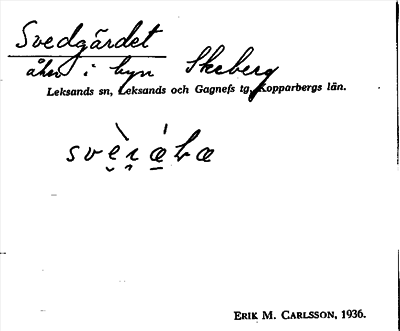 Svedgärdet
åker i byn Skeberg
Leksands sn, Leksands och Gagnefs tg, Kopparbergs län.
ERIK M. CARLSSON, 1936.